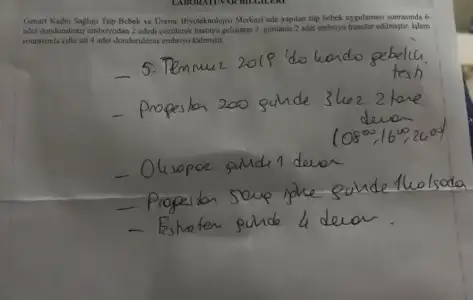 LABORATUVAR BİLGİLERİ
Kadın Sağlığı Tüp Bebek ve Üreme Biyoteknolojisi Merkezi'nde yapılan tüp bebek uygulaması sonrasında 6
adet dondurulmuş embriyodan 2 adedi çözülerek hastaya gelişimin 5. gününde 2 adet embriyo transfer edilmiştir. İşlem
sonrasında çifte ait 4 adet dondurulmuş embriyo kalmıştır.
– 5. Temmuz 2019 'da kanda gebelik
testi
– Progestan 200 günde 3 kez 2 tane
devam
(08⁰⁰, 16⁰⁰, 24⁰⁰)
– günde 1 devam
– Progestan 50mg iğne günde 1 kalçada
– Estrofem günde 4 devam.